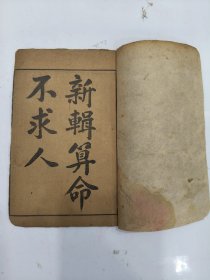 新輯算命
不求人